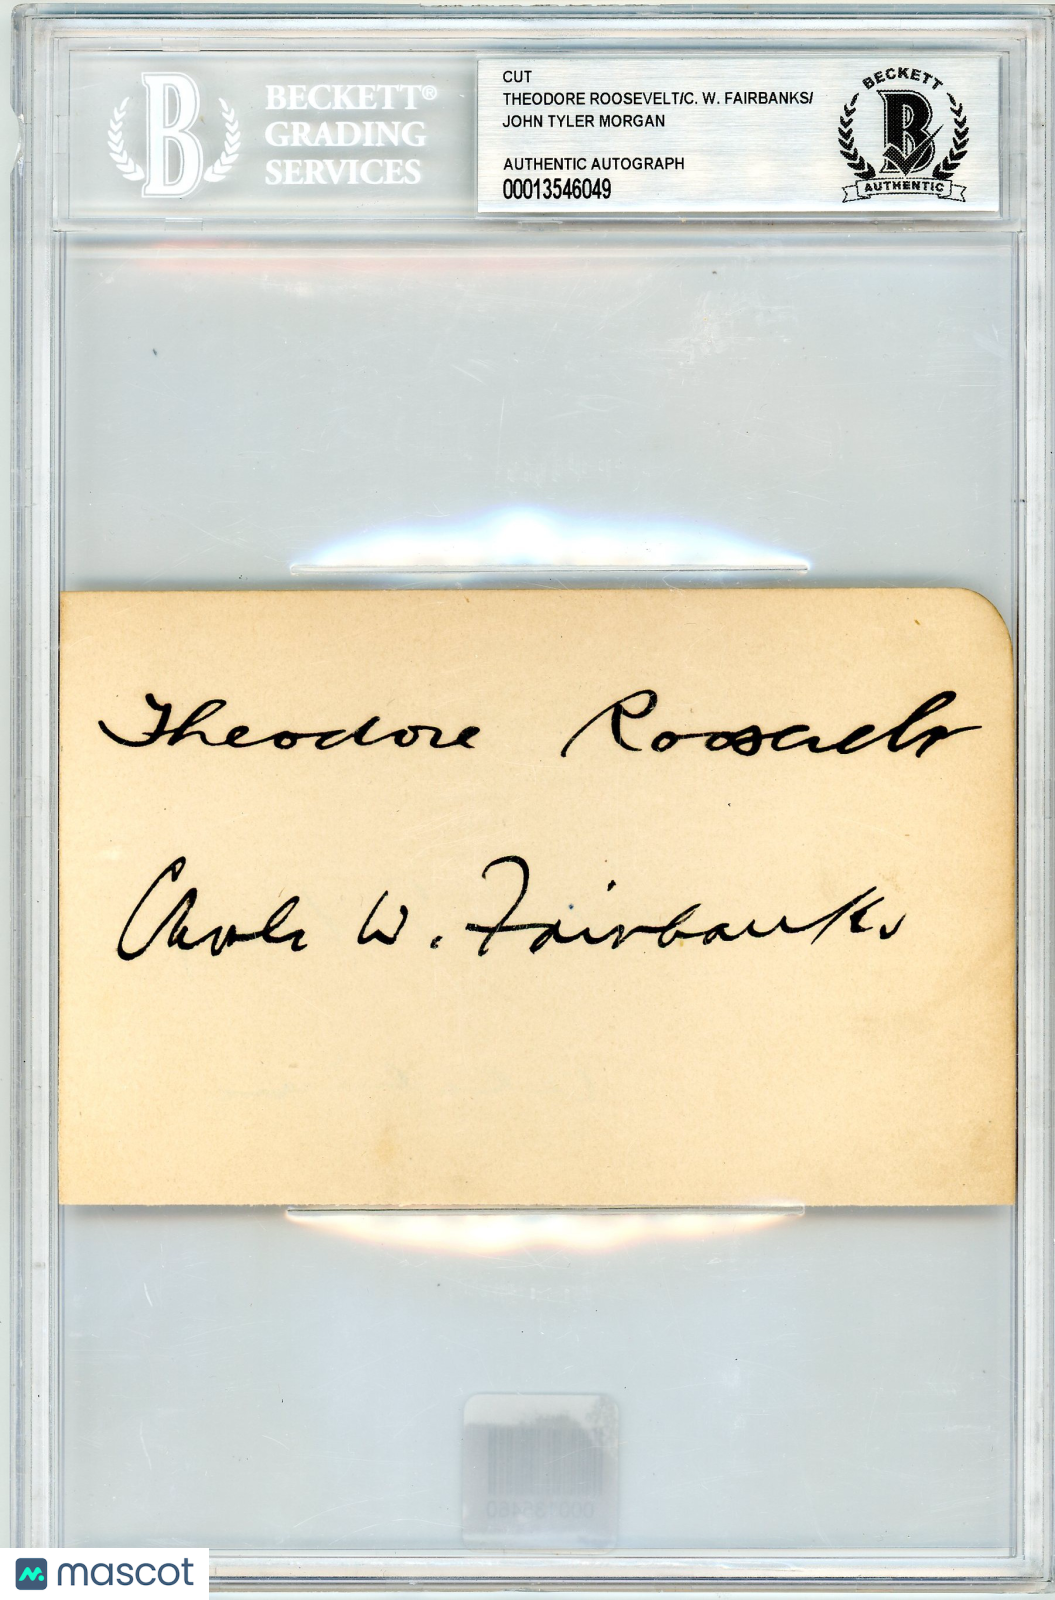 BECKETT®
GRADING
SERVICES
B
CUT
THEODORE ROOSEVELT/C. W. FAIRBANKS/
JOHN TYLER MORGAN
AUTHENTIC AUTOGRAPH
00013546049
BECKETT
B
AUTHENTIC
Theodore Roosevelt
Charles W. Fairbanks
mascot